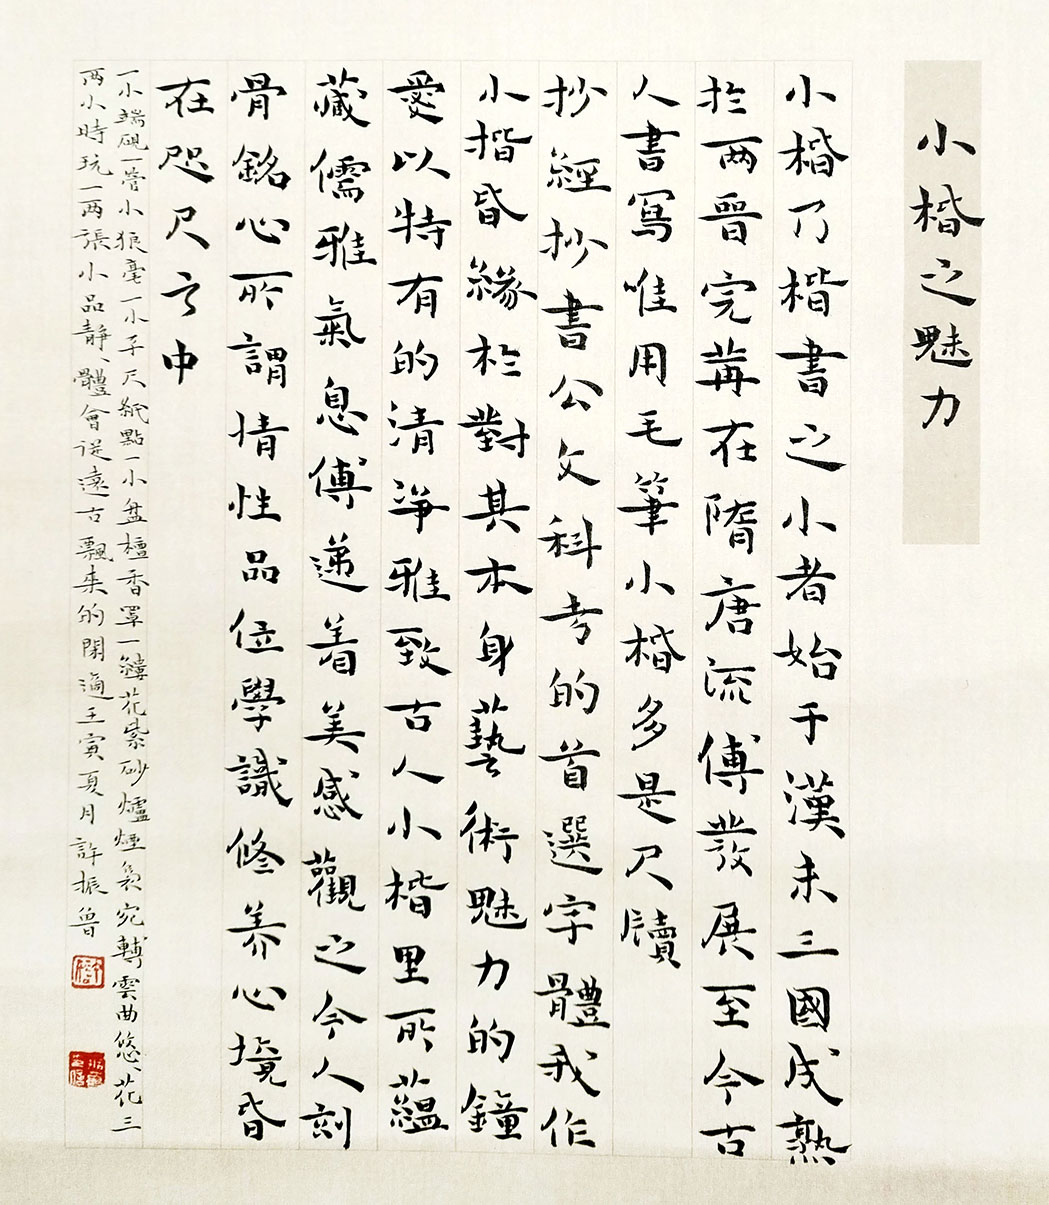 小楷之魅力
小楷乃楷书之小者始于漢末三國成熟
於兩晋完善在隋唐流傅發展至今古
人書寫唯用毛筆小楷多是尺牘
抄經抄書公文科考的首選字體我作
小楷皆緣於對其本身藝術魅力的鐘
愛以特有的清净雅致古人小楷里所蘊
藏儒雅氣息傅遞着美感觀之今人刻
骨銘心所謂情性品位學識修养心境皆
在咫尺之中
一小端硯一管小狼毫一小平尺紙點一小盆檀香罩一鏤花紫砂爐煙氣宛轉雲曲悠、花三
兩小時玩一兩張小品静、體會從遠古飄来的閑適壬寅夏月許振魯